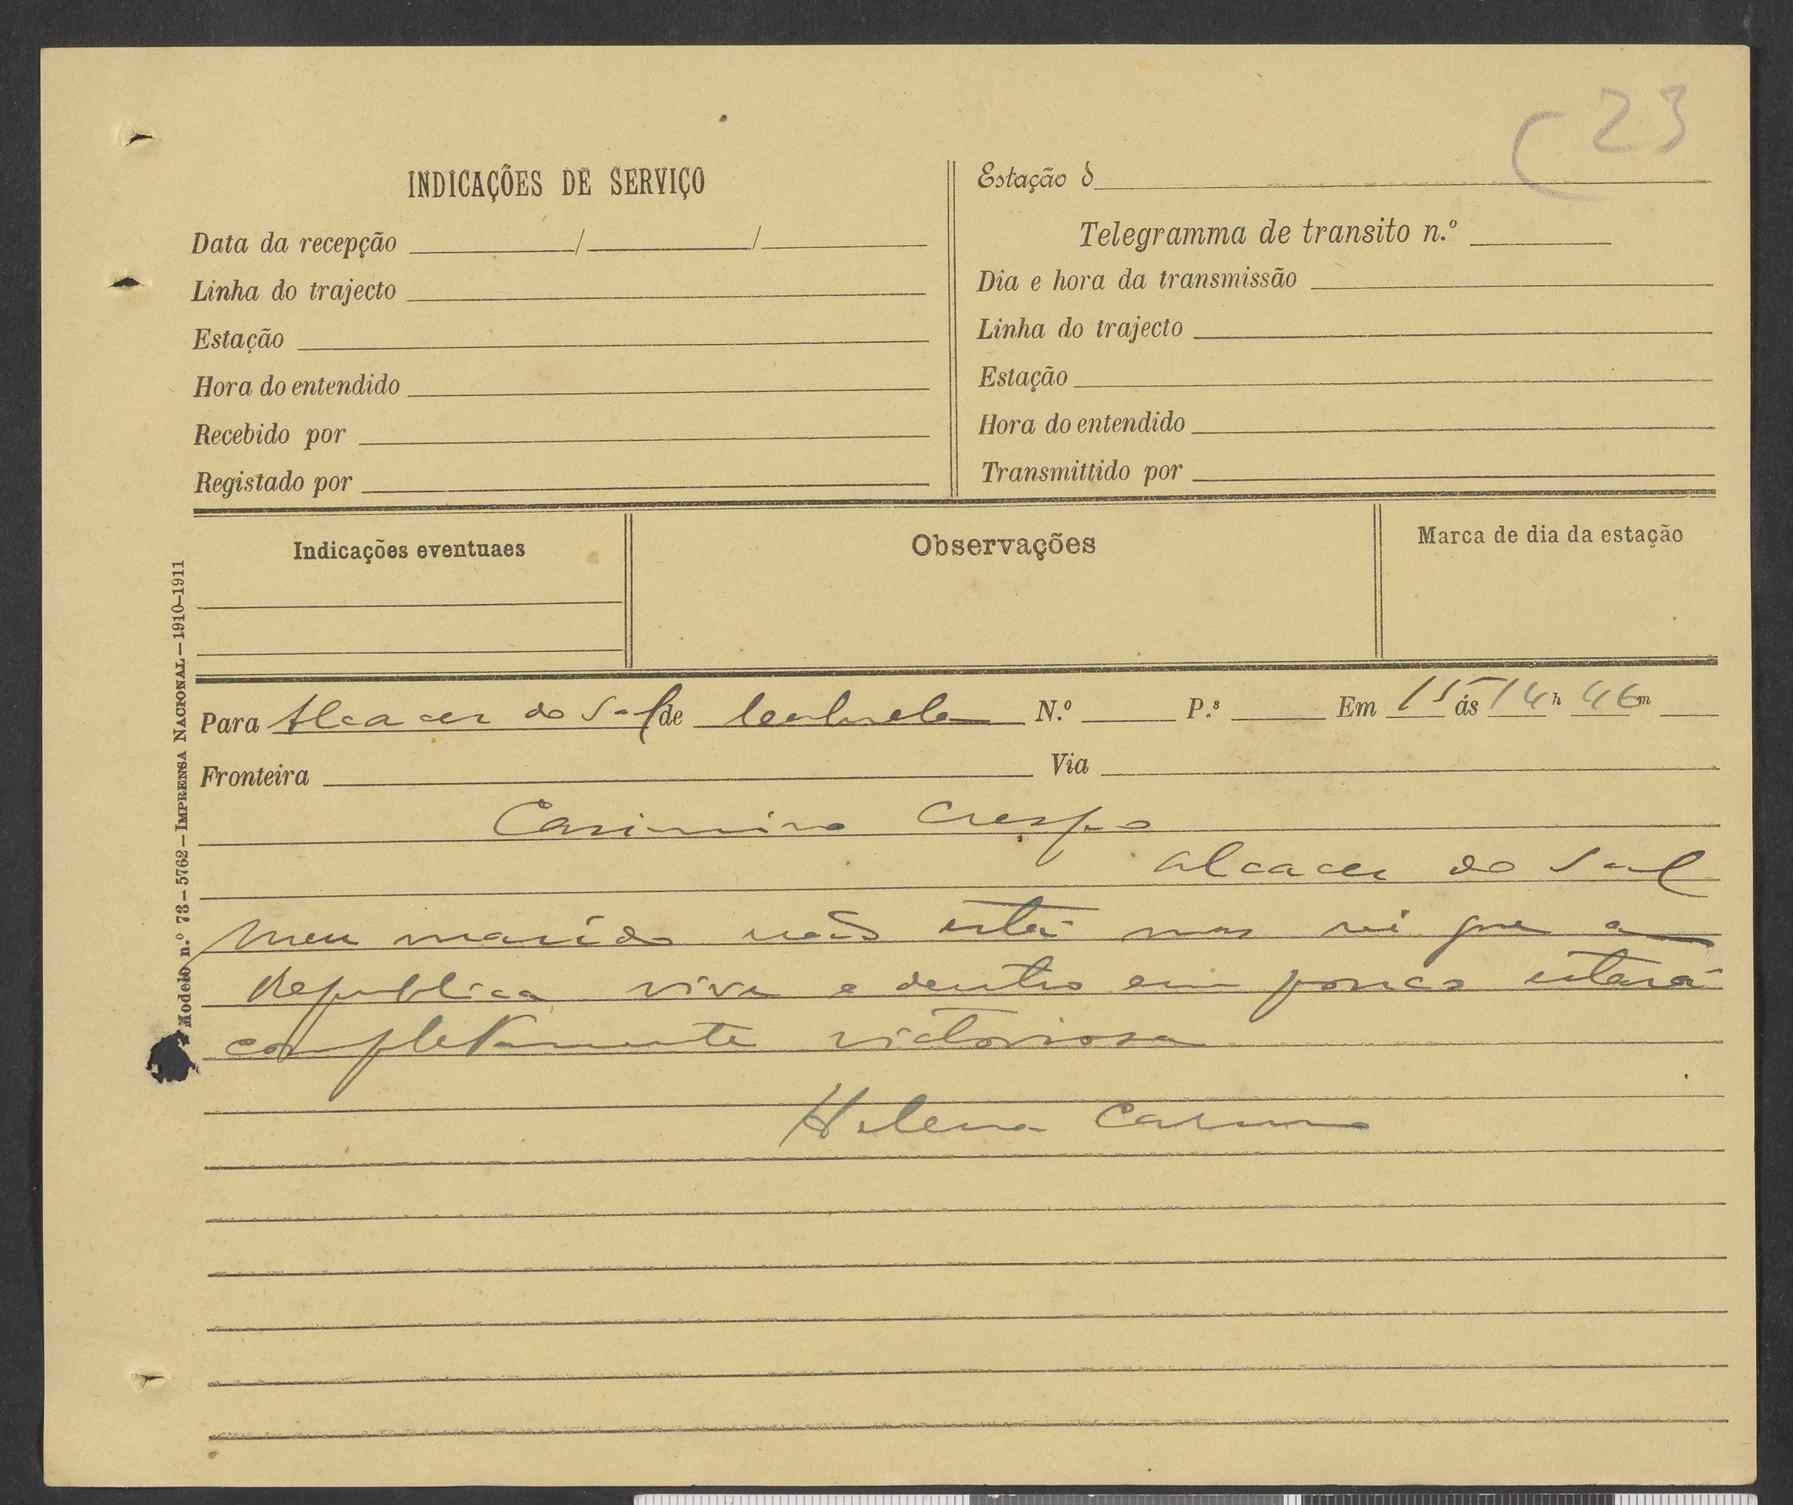 C 23
INDICAÇÕES DE SERVIÇO
Data da recepção / /
Linha do trajecto
Estação
Hora do entendido
Recebido por
Registado por
Estação d
Telegramma de transito n.º
Dia e hora da transmissão
Linha do trajecto
Estação
Hora do entendido
Transmittido por
Indicações eventuaes
Observações
Marca de dia da estação
Modelo n.º 73 – 5762 – IMPRENSA NACIONAL – 1910–1911
Para Alcacer do Sal de N.º P.s Em 15 ás 14 h 46 m
Fronteira Via
Casimiro Crespo
Alcacer do Sal
Meu marido não está mas sei que a
Republica vive e dentro em pouco estará
completamente victoriosa
Helena